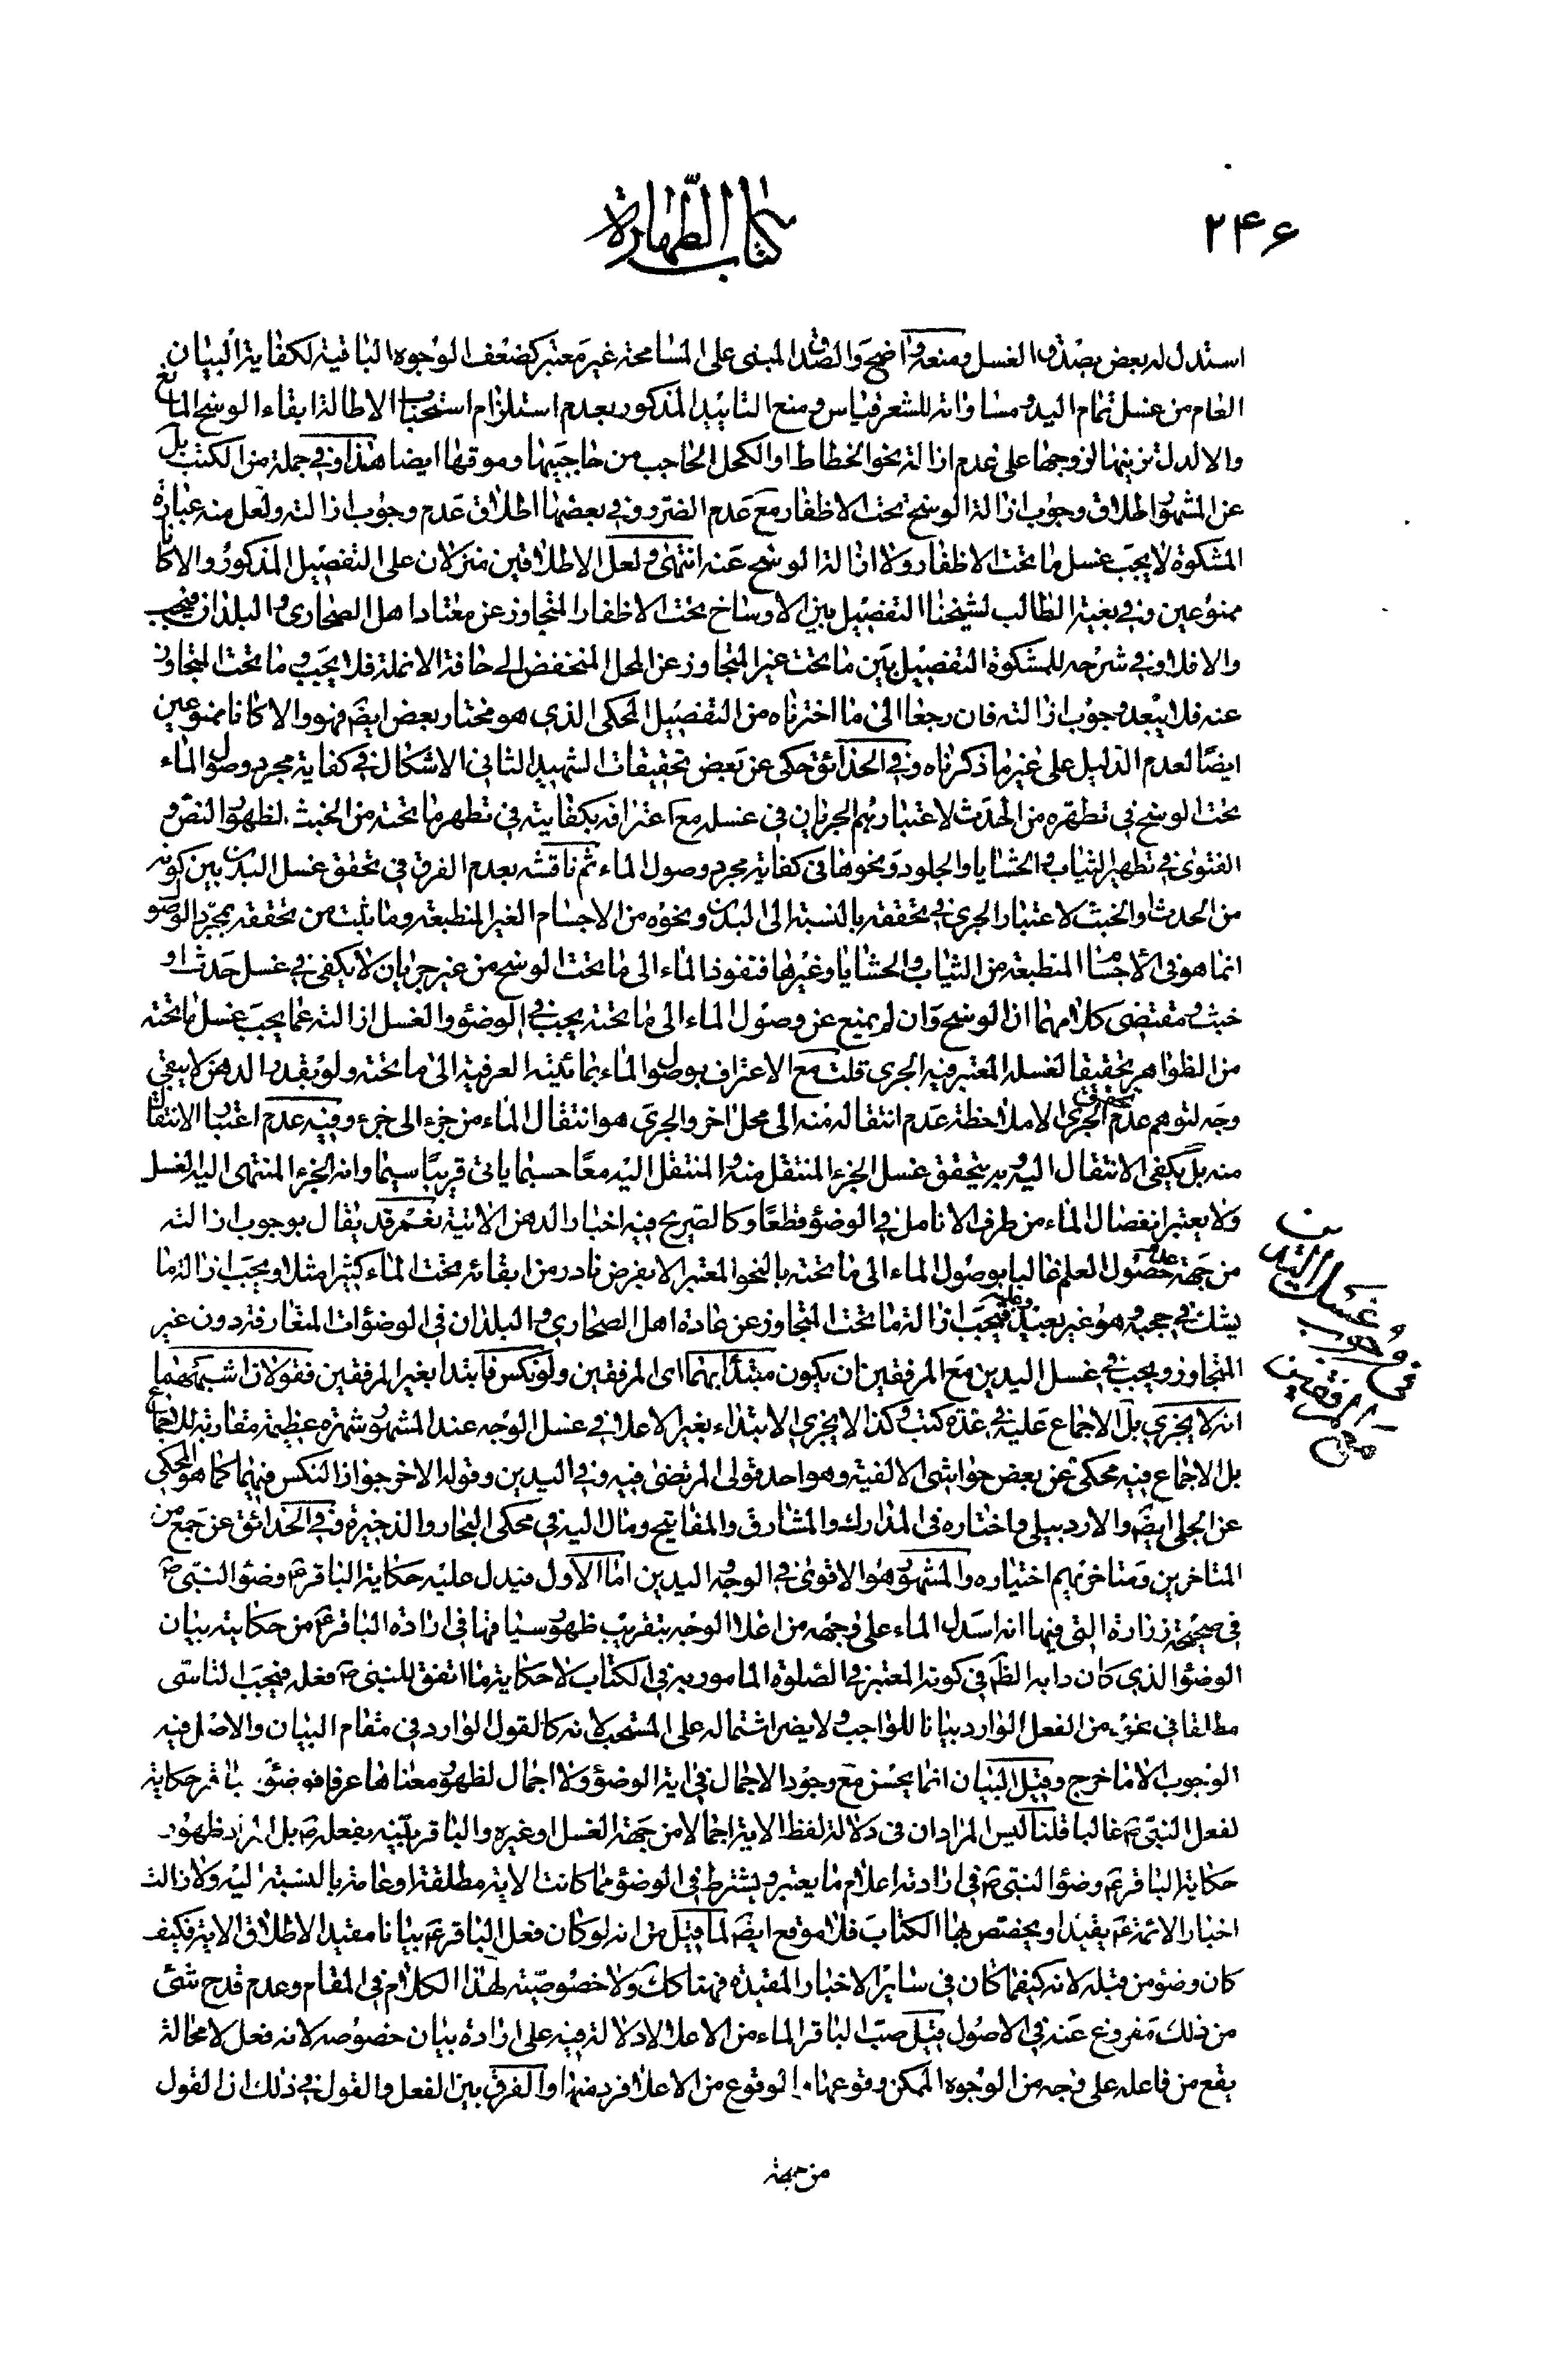 ۲۴۶
كتاب الطهارة
استدل له بعض بصدق الغسل ومنعه واضح والصدق المبنى على المسامحة غير معتبر كضعف الوجوه الباقية لكفاية البيان
العام من غسل تمام اليد ومساواته للشعر قياس ومنع التاييد المذكور بعدم استلزام استحباب الاطالة ابقاء الوسخ المانع
والا لدلت تزيينها لزوجها على عدم ازالة نحو الخطاط او الكحل الحاجب من حاجبيها وموقها ايضا هذا وفي جملة من الكتب بل
عن المشهور اطلاق وجوب ازالة الوسخ تحت الاظفار مع عدم الضرر وفي بعضها اطلاق عدم وجوب ازالته ولعل منه عبارة
المشكوة لا يجب غسل ما تحت الاظفار ولا ازالة الوسخ عنه انتهى ولعل الاطلاقين منزلان على التفصيل المذكور والا كانا
ممنوعين وفي بغية الطالب لشيخنا التفصيل بين الاوساخ تحت الاظفار المتجاوز عن معتاد اهل الصحارى والبلدان فيجب
والا فلا وفي شرحه للمشكوة التفصيل بين ما تحت غير المتجاوز عن المحل المنخفض الى حافة الانملة فلا يجب وما تحت المتجاوز
عنه فلا يبعد وجوب ازالته فان رجعا الى ما اخترناه من التفصيل المحكى الذى هو مختار بعض ايضَ فهو والا كانا ممنوعين
ايضًا لعدم الدليل على غير ما ذكرناه وفي الحدائق حكى عن بعض تحقيقات الشهيد الثاني الاشكال في كفاية مجرد وصول الماء
تحت الوسخ في تطهره من الحدث لاعتبارهم الجريان في غسله مع اعترافه بكفايته في تطهر ما تحته من الخبث لظهور النص و
الفتوى في تطهير الثياب والحشايا والجلود ونحوها في كفاية مجرد وصول الماء ثم ناقشه بعدم الفرق في تحقق غسل البدن بين كونه
من الحدث او الخبث لاعتبار الجرى في تحققه بالنسبة الى البدن ونحوه من الاجسام الغير المنطبعة وما يثبت من تحققه بمجرد الوصول
انما هو في الاجسام المنطبعة من الثياب والحشايا وغيرها فنفوذ الماء الى ما تحت الوسخ من غير جريان لا يكفى في غسل حدث او
خبث ومقتضى كلامهما ان الوسخ وان لم يمنع عن وصول الماء الى ما تحته يجب في الوضوء والغسل ازالته عما يجب غسل ما تحته
من الظواهر تحقيقا لغسله المعتبر فيه الجرى قلت مع الاعتراف بوصول الماء بمائيته العرفية الى ما تحته ولو بقدر الدهن لا يبقى
وجه لتوهم عدم تحقق الجرى الا ملاحظة عدم انتقاله منه الى محل اخر والجرى هو انتقال الماء من جزء الى جزء وفيه عدم اعتبار الانتقال
منه بل يكفى الانتقال اليه وبه يتحقق غسل الجزء المنتقل منه والمنتقل اليه معًا حسبما ياتى قريبًا سيما وانه الجزء المنتهى اليه الغسل
ولا يعتبر انفصال الماء من طرف الانامل في الوضوء قطعًا وكالصريح فيه اخبار الدهن الاتية نعم قد يقال بوجوب ازالته
من جهة عدم حصول العلم غالبا بوصول الماء الى ما تحته بالنحو المعتبر الا بفرض نادر من ابقائه تحت الماء كثيرا مثلا ويجب ازالة ما
يشك في حجبه وهو غير بعيد وعليه فيجب ازالة ما تحت المتجاوز عن عادة اهل الصحارى والبلدان في الوضوءات المتعارفة دون غير
المتجاوز ويجب في غسل اليدين مع المرفقين ان يكون مبتدأ بهما اى المرفقين ولو نكس فابتدا بغير المرفقين فقولان اشبههما
انه لا يجزى بل الاجماع عليه في عدة كتب وكذا لا يجزى الابتداء بغير الاعلى في غسل الوجه عند المشهور شهرة عظيمة مقاربة للاجماع
بل الاجماع فيه محكى عن بعض حواشى الالفية وهو احد قولى المرتضى فيه وفي اليدين وقوله الاخر جواز النكس فيهما كما هو المحكى
عن الحلى ايضَ والاردبيلى واختاره في المدارك والمشارق والمفاتيح ومال اليه في محكى البحار والذخيرة وفي الحدائق عن جمع من
المتاخرين ومتاخريهم اختياره والمشهور هو الاقوى في الوجه واليدين اما الاول فيدل عليه حكاية الباقرعَ وضوء النبىصَ
في صحيحة زرارة التى فيها انه اسدل الماء على وجهه من اعلا الوجه بتقريب ظهور سياقها في ارادة الباقرعَ من حكايته بيان
الوضوء الذى كان دابه الظَ في كونه المعتبر في الصلوة المامور به في الكتاب لا حكاية ما اتفق للنبىصَ فعله فيجب التاسى
مطلقا في نحوه من الفعل الوارد بيانا للواجب ولا يضر اشتماله على المستحب لانه كالقول الوارد في مقام البيان والاصل فيه
الوجوب الا ما خرج وقيل البيان انما يحسن مع وجود الاجمال في اية الوضوء ولا اجمال لظهور معناها عرفا فوضوء الباقر حكاية
لفعل النبىصَ غالبا قلنا ليس المراد ان في دلالة لفظ الاية اجمالا من جهة الغسل او غيره والباقر يبينه بفعلهصَ بل المراد ظهور
حكاية الباقرعَ وضوء النبىصَ في ارادته اعلام ما يعتبر ويشترط في الوضوء مما كانت الاية مطلقة او عامة بالنسبة اليه ولا زالت
اخبار الائمةعَ يقيد او يخصص بها الكتاب فلا موقع ايضَ لما قيل من انه لو كان فعل الباقرعَ بيانا مقيدا لاطلاق الاية فكيف
كان وضوء من قبله لانه كيفما كان في سائر الاخبار المقيدة فهنا كك ولا خصوصية لهذا الكلام في المقام وعدم قدح شئ
من ذلك مفروغ عنه في الاصول قيل صب الباقر الماء من الاعلا لا دلالة فيه على ارادة بيان خصوصه لانه فعل لا محالة
يقع من فاعله على وجه من الوجوه الممكن وقوعها والوقوع من الاعلا فرد منها والفرق بين الفعل والقول في ذلك ان القول
من جهة
في وجوب غسل اليدين
مع المرفقين